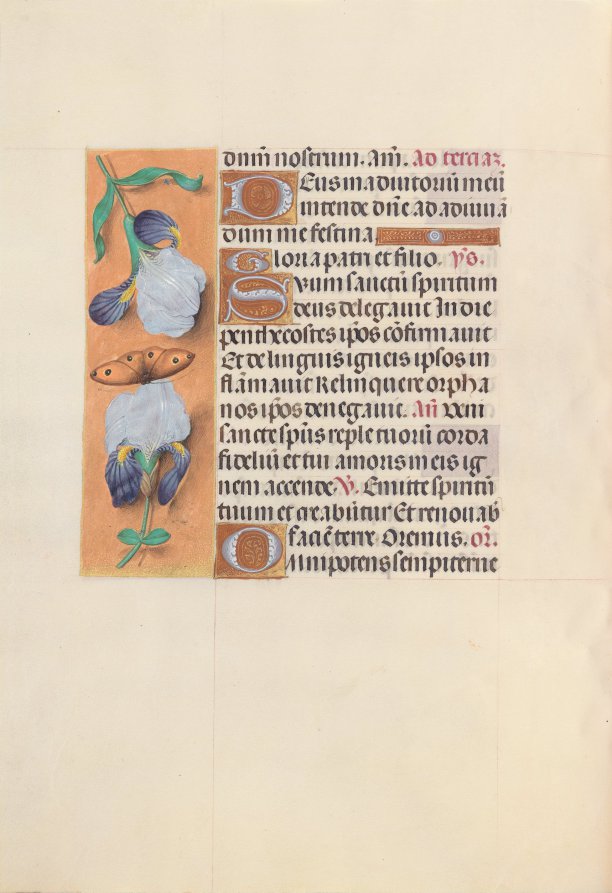 dnm̄ nostrum. am̄. ad terciaz.
Deus in adiutoriū meū
intende dn̄e ad adiuuā
dum me festina
Gloria patri et filio. ys.
Suum sanctū spiritum
deus delegauit In die
penthecostes ip̄os cōfirmauit
Et de linguis igneis ipsos in
flāmauit Relinquere orpha
nos ip̄os denegauit. An̄ veni
sancte sp̄us reple tuorū corda
fideliū et tui amoris in eis ig
nem accende V̄. Emitte spiritū
tuum et creabūtur Et renouab
faciē terre Oremus. or̄.
Omnipotens sempiterne